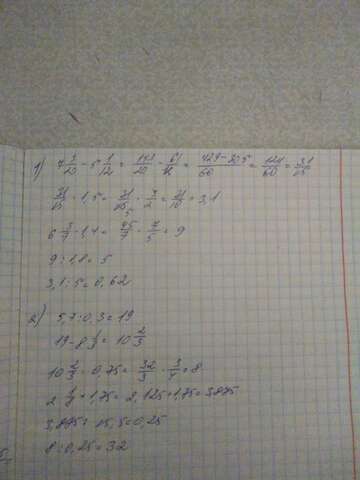 1) 7 3/20 - 5 1/12 = 143/20 - 61/12 = (429-305)/60 = 124/60 = 31/15
31/15 · 1,5 = 31/15 · 3/2 = 31/10 = 3,1
6 3/7 · 1,4 = 45/7 · 7/5 = 9
9 : 1,8 = 5
3,1 : 5 = 0,62
2) 5,7 : 0,3 = 19
19 - 8 1/3 = 10 2/3
10 2/3 · 0,75 = 32/3 · 3/4 = 8
2 1/8 + 1,75 = 2,125 + 1,75 = 3,875
3,875 : 15,5 = 0,25
8 : 0,25 = 32